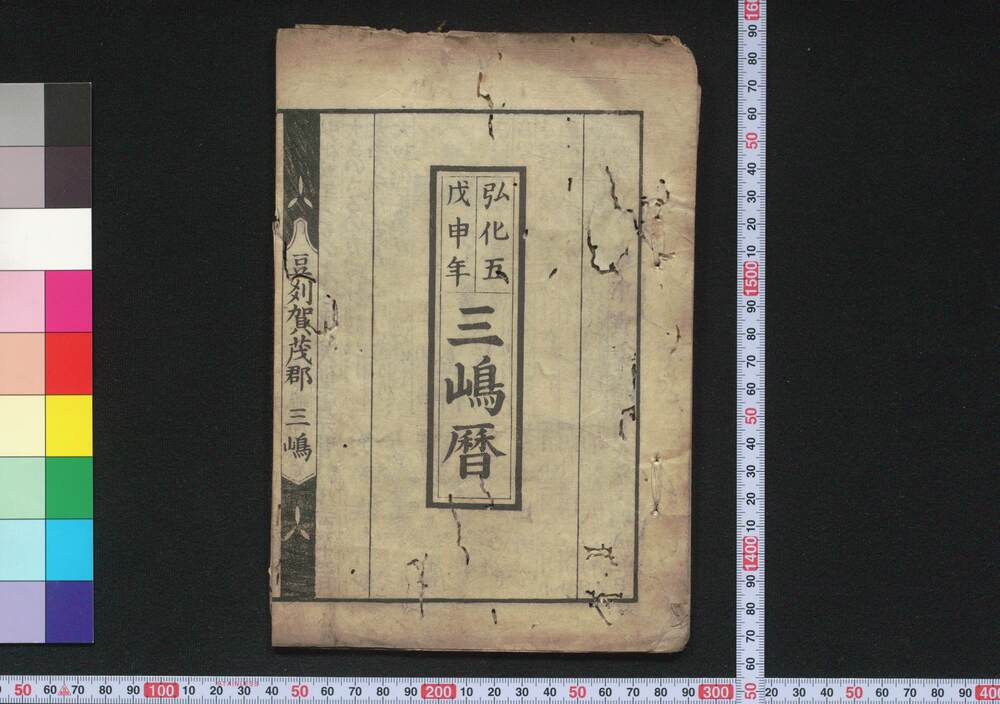 弘化五
戊申年
三嶋暦
豆刕賀茂郡 三嶋
STAINLESS
50 60 70 80 90 100 10 20 30 40 50 60 70 80 90 200 10 20 30 40 50 60 70 80 90 300 10 20 30 40 50 60 70 80 90 400
90 80 70 60 50 40 30 20 10 1500 90 80 70 60 50 40 30 20 10 1400 90 80 70 60 50